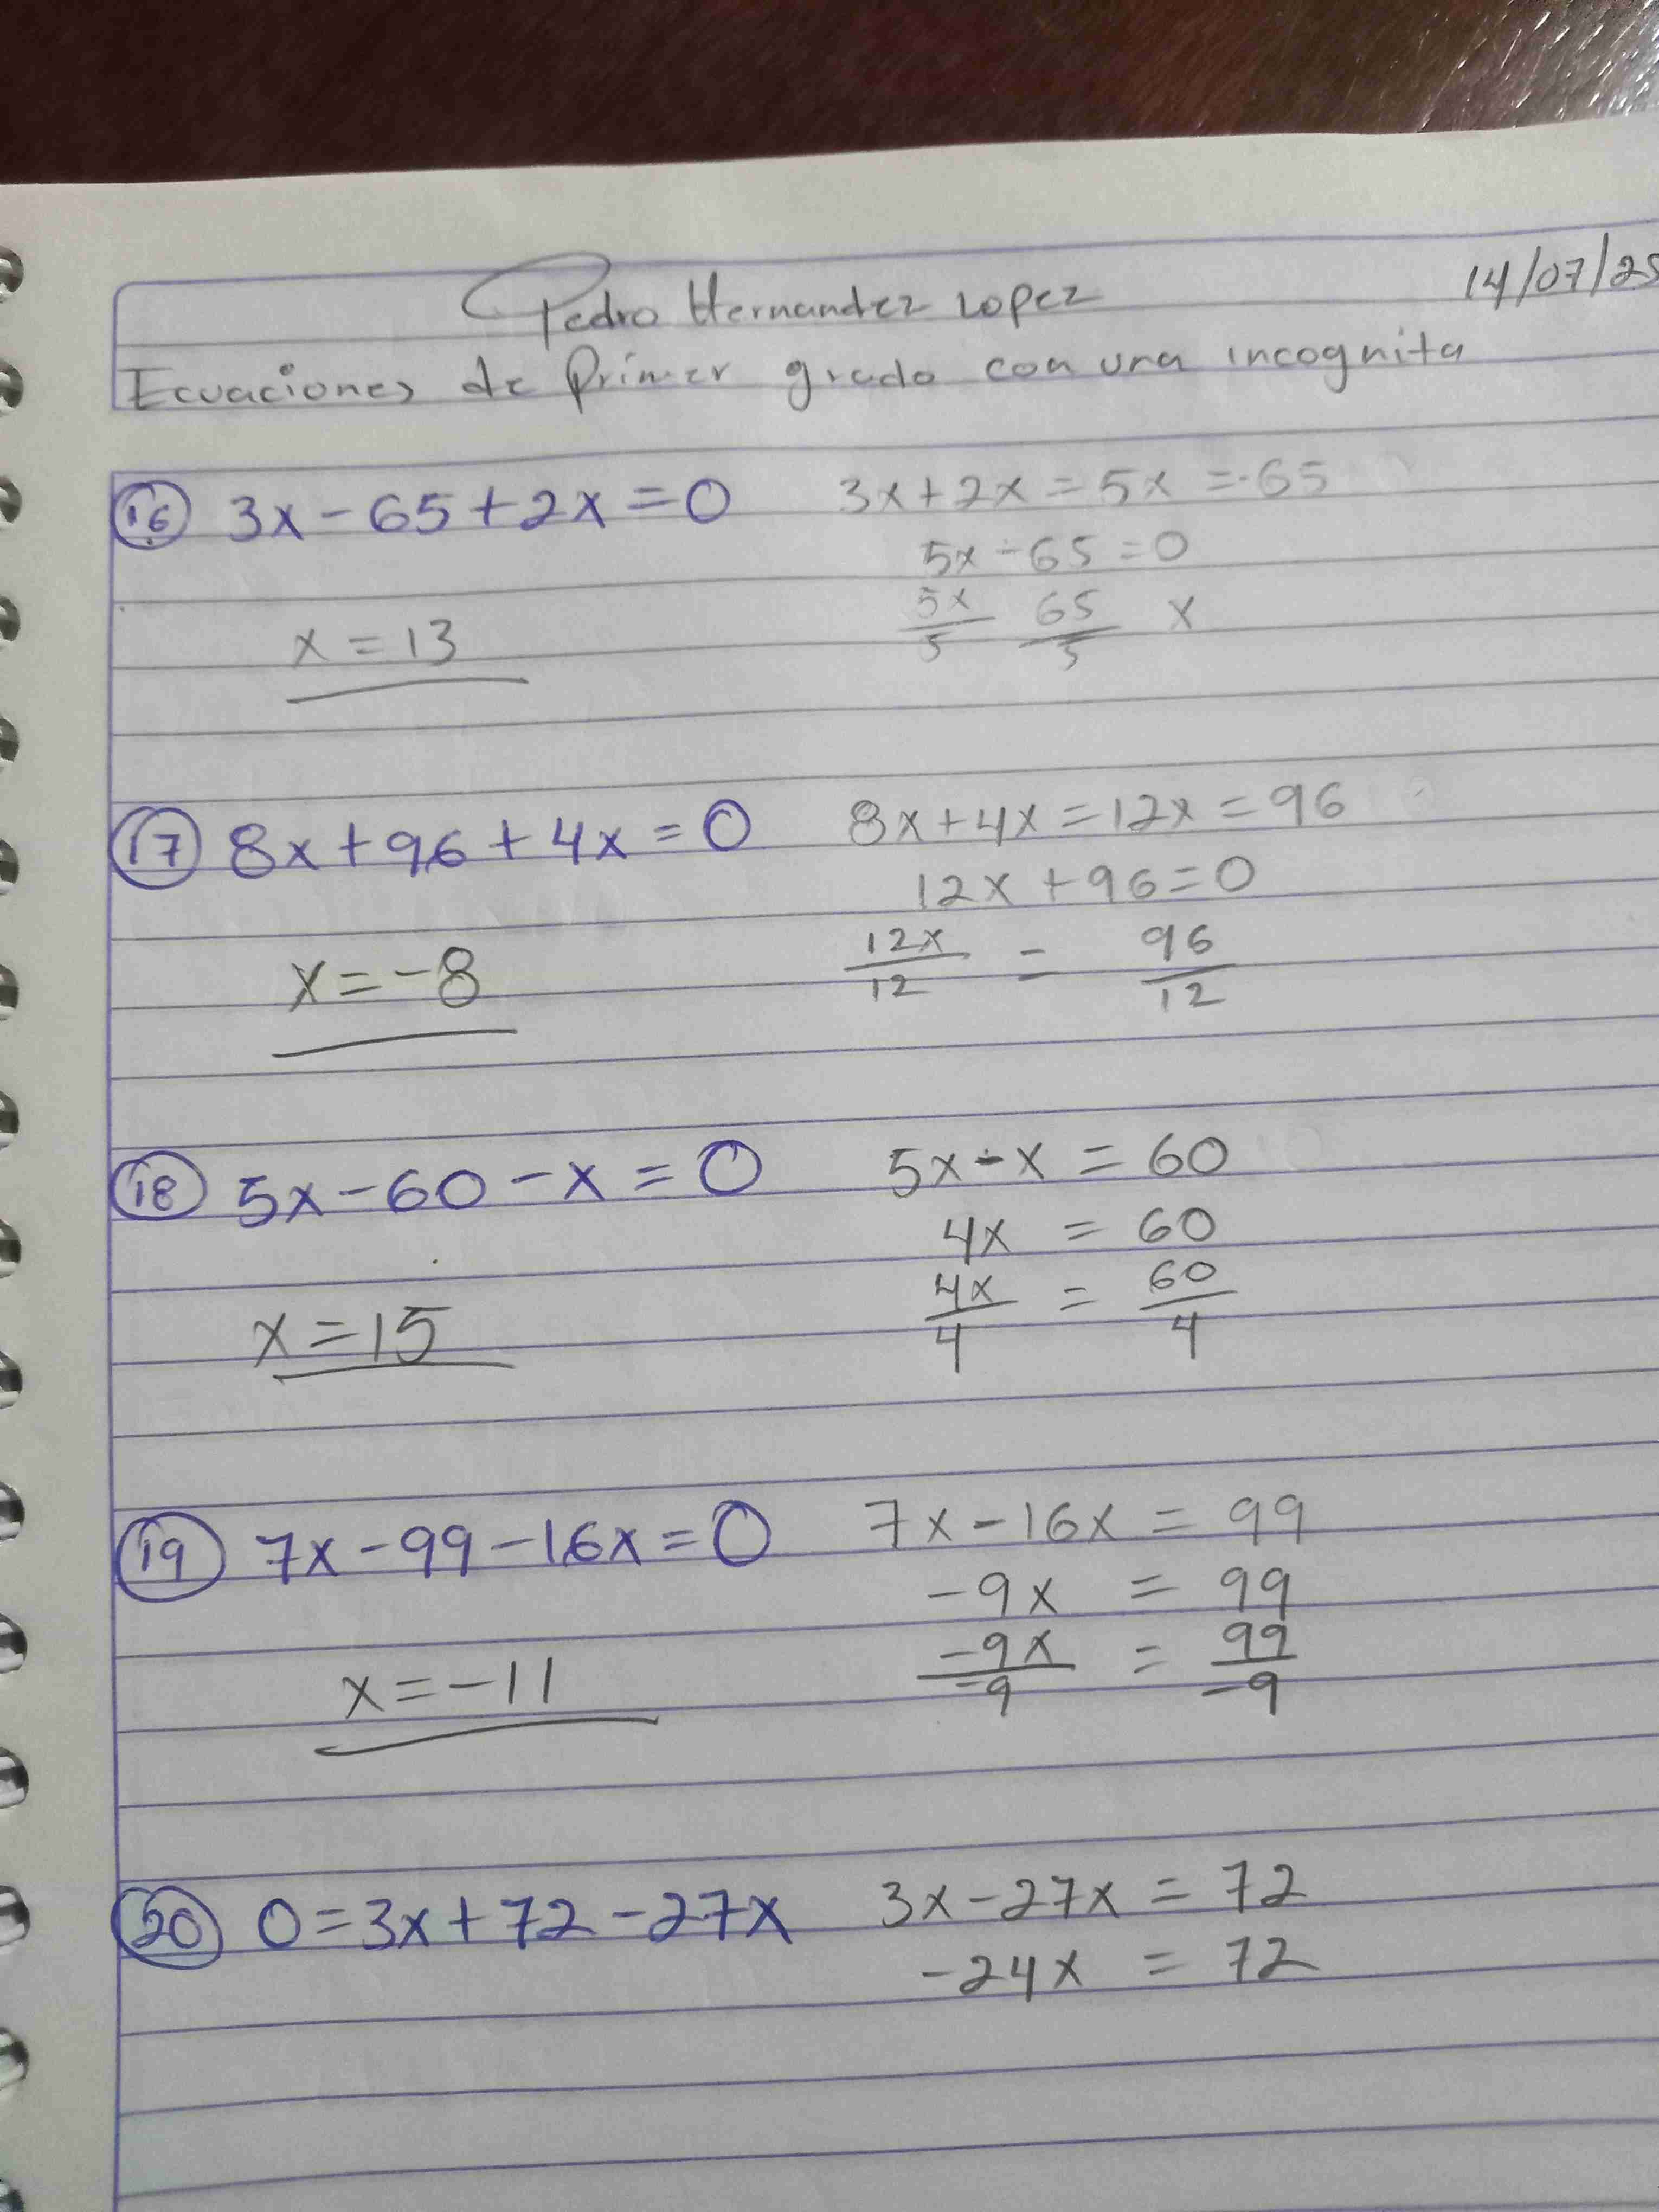 Pedro Hernandez Lopez 14/07/25
Ecuaciones de Primer grado con una incognita
16 3x - 65 + 2x = 0 3x + 2x = 5x = -65
5x - 65 = 0
5x/5 65/5 x
x = 13
17 8x + 96 + 4x = 0 8x + 4x = 12x = 96
12x + 96 = 0
12x/12 = 96/12
x = -8
18 5x - 60 - x = 0 5x - x = 60
4x = 60
4x/4 = 60/4
x = 15
19 7x - 99 - 16x = 0 7x - 16x = 99
-9x = 99
-9x/-9 = 99/-9
x = -11
20 0 = 3x + 72 - 27x 3x - 27x = 72
-24x = 72